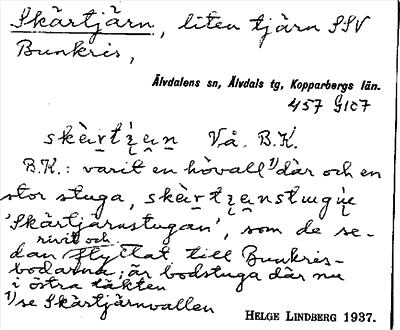 Skärtjärn, liten tjärn SSV
Bunkris,
Älvdalens sn, Älvdals tg, Kopparbergs län.
457 G1c7
skèrtʒ̣an Vå. B.K.
B.K.: varit en hövall ¹) där och en
stor stuga,
'Skärtjärnstugan', som de se-
rivit och
dan flyttat till Bunkris-
bodarna; är bodstuga där nu
i östra täkten
¹) se Skärtjärnvallen
HELGE LINDBERG 1937.